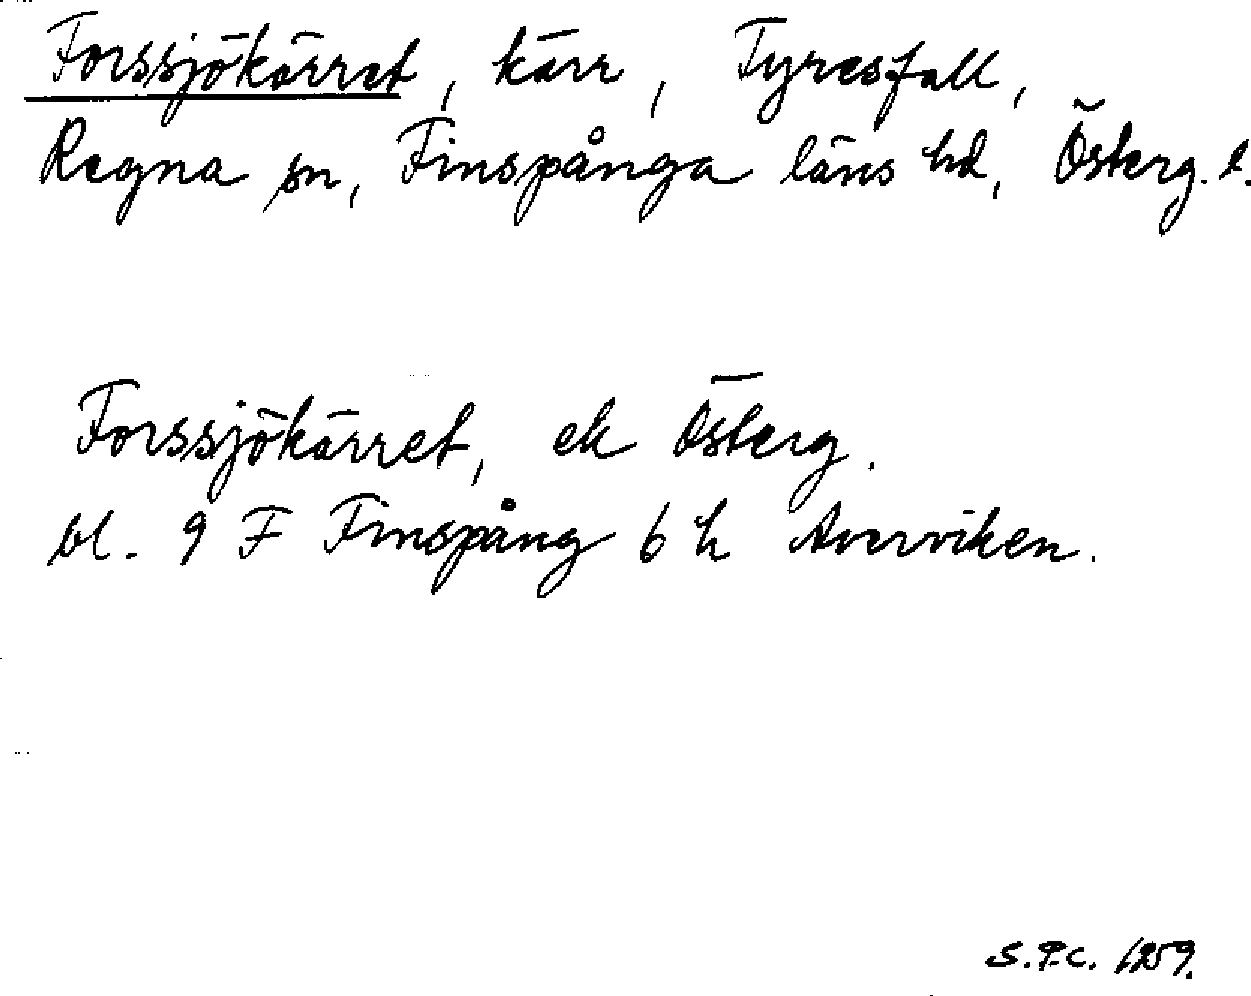 Forssjökärret, kärr, Tyresfall,
Regna sn, Finspånga läns hd, Österg. l.
Forssjökärret, ek Österg.
bl. 9 F Finspång 6 h Averviken.
S.P.C. 1259.